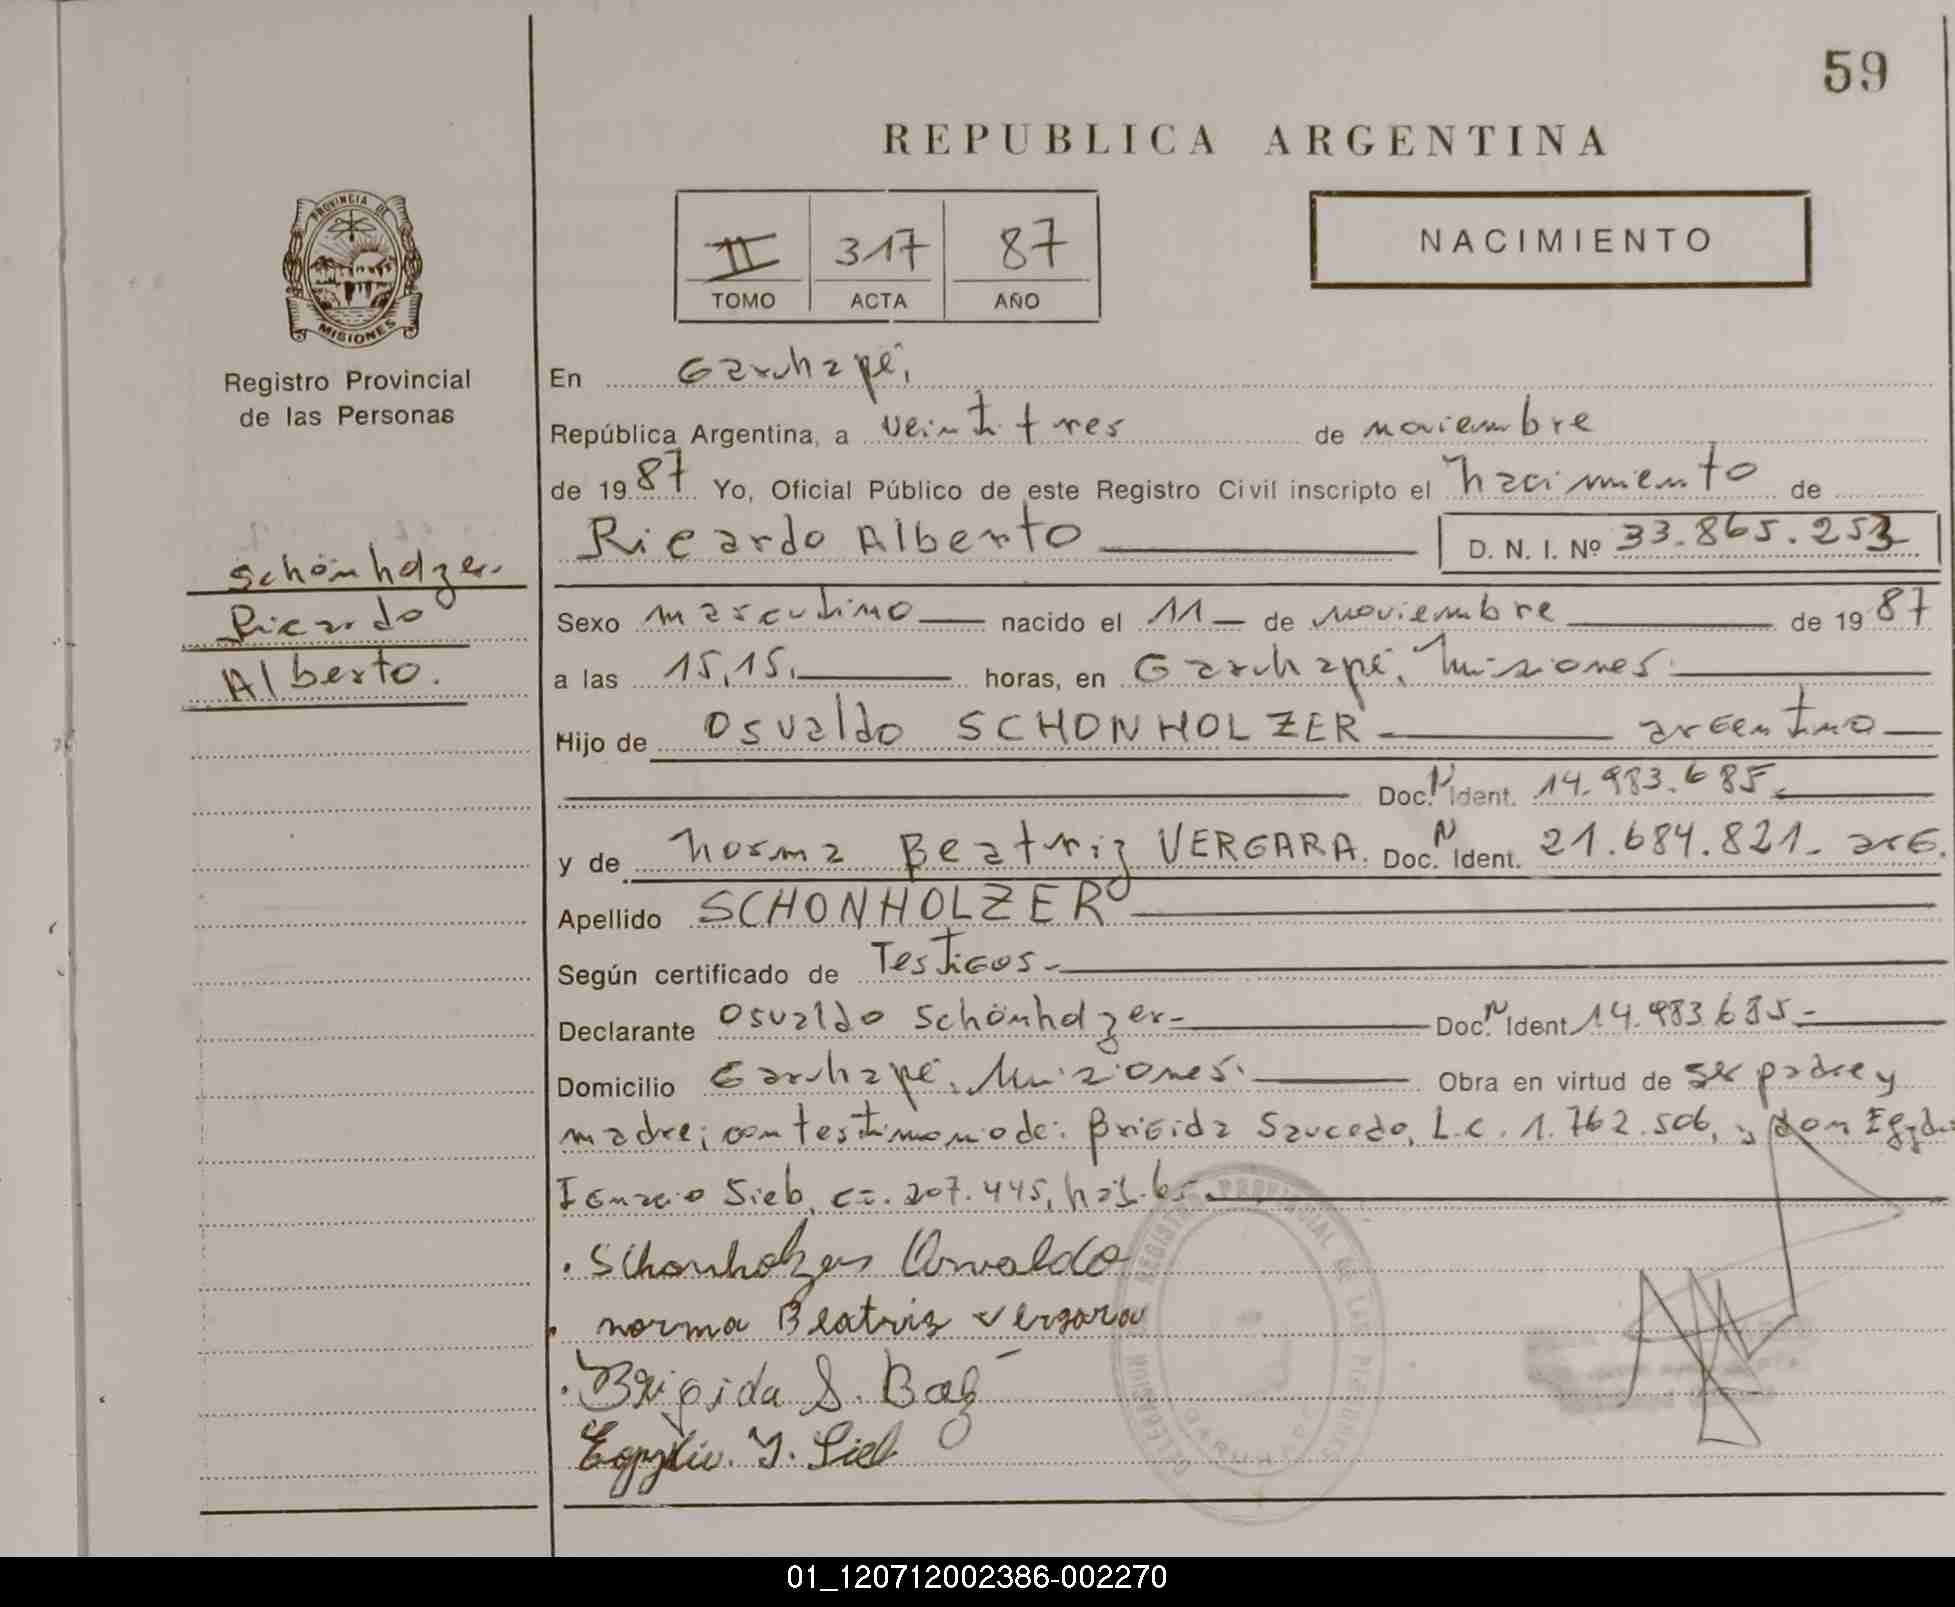 59
REPUBLICA ARGENTINA
PROVINCIA DE
MISIONES
II 317 87
TOMO ACTA AÑO
NACIMIENTO
Registro Provincial
de las Personas
Schönholzer
Ricardo
Alberto.
En Garuhapé,
República Argentina, a veintitres de noviembre
de 1987 Yo, Oficial Público de este Registro Civil inscripto el nacimiento de
Ricardo Alberto D. N. I. Nº 33.865.253
Sexo masculino nacido el 11 de noviembre de 1987
a las 15,15. horas, en Garuhapé, Misiones.
Hijo de Osvaldo SCHONHOLZER argentino
Doc. N Ident. 14.983.685.
y de Norma Beatriz VERGARA. Doc. N Ident. 21.684.821. arg.
Apellido SCHONHOLZER
Según certificado de Testigos.
Declarante Osvaldo Schönholzer- Doc. N Ident. 14.983.685-
Domicilio Garuhapé, Misiones. Obra en virtud de ser padre y
madre; con testimonio de: Brigida Saucedo, L.c. 1.762.506, y don Egydio
Ignacio Sieb, 207.445,
Schonholzer Osvaldo
norma Beatriz Vergara
Brigida S. Baez
Egydio. Y. Sieb
REGISTRO PROVINCIAL DE LAS PERSONAS
GARUHAPE
01_120712002386-002270